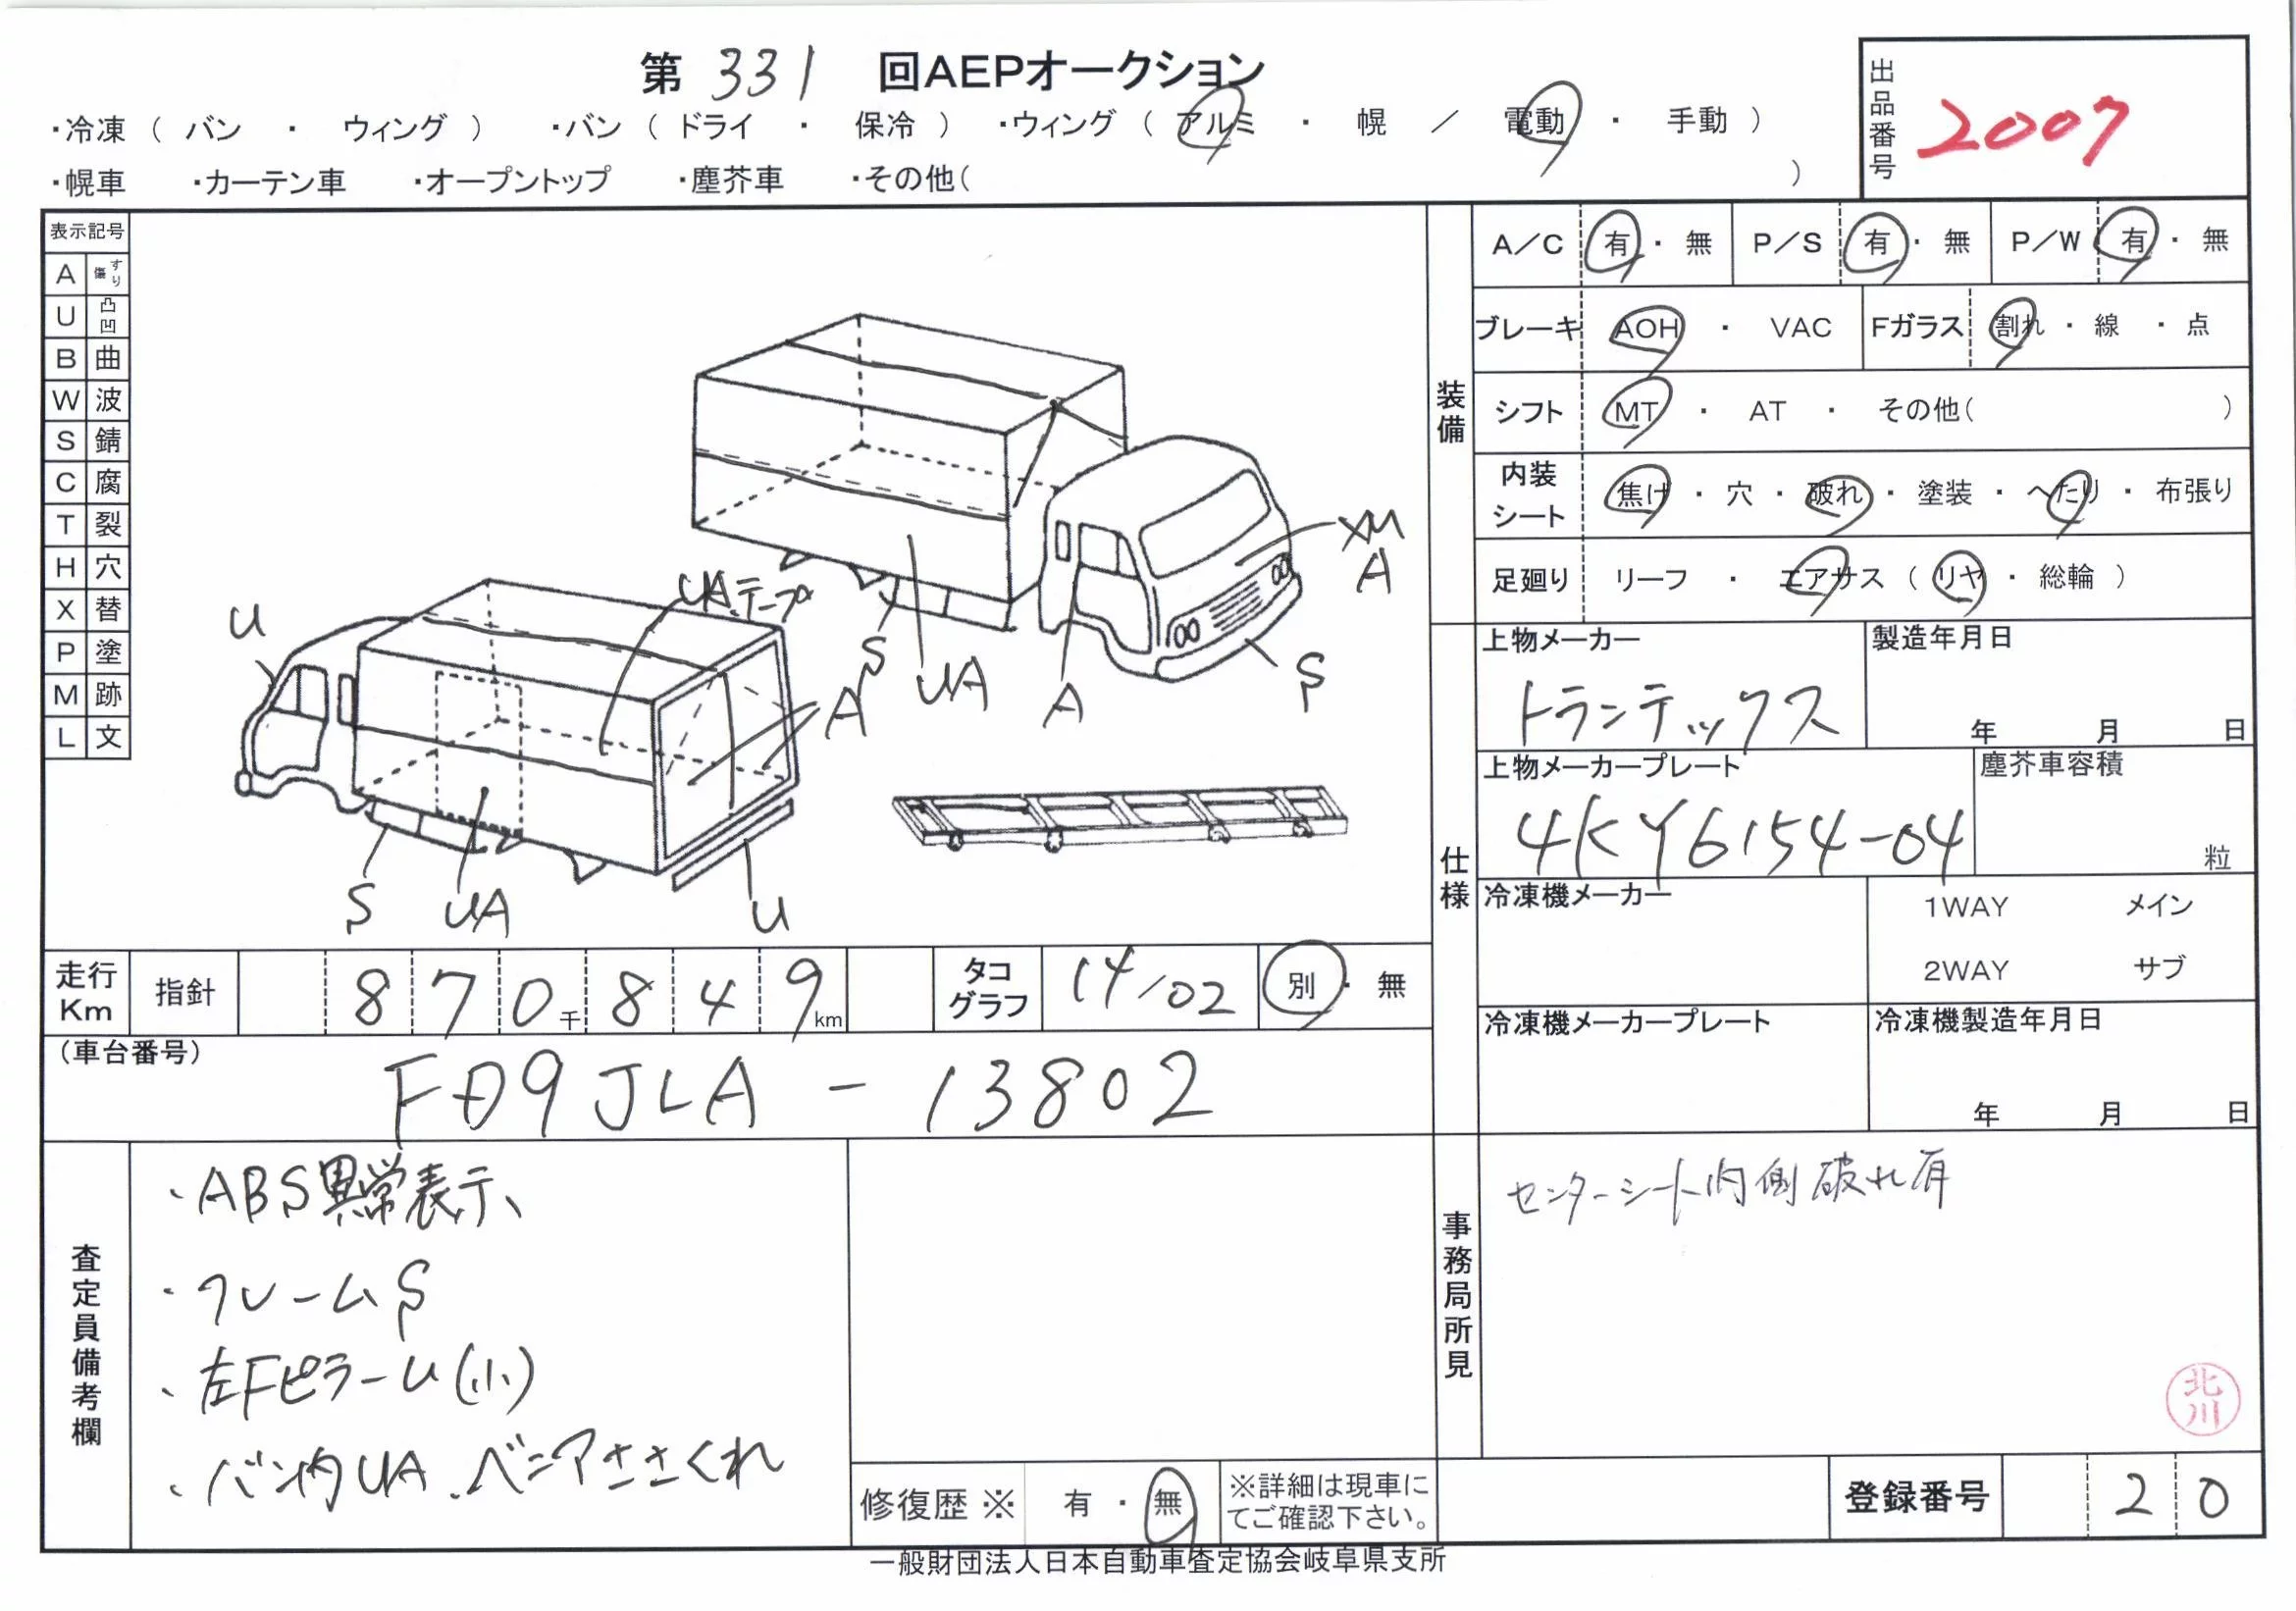 第 331 回AEPオークション
・冷凍 ( バン ・ ウィング ) ・バン ( ドライ ・ 保冷 ) ・ウィング ( アルミ ・ 幌 / 電動 ・ 手動 )
・幌車 ・カーテン車 ・オープントップ ・塵芥車 ・その他( )
出品番号 2007
表示記号
A すり傷
U 凸凹
B 曲
W 波
S 錆
C 腐
T 裂
H 穴
X 替
P 塗
M 跡
L 文
U
UAテープ
S
UA
A
XM
A
S
A
S
UA
U
装備
A/C 有 ・ 無 P/S 有 ・ 無 P/W 有 ・ 無
ブレーキ AOH ・ VAC Fガラス 割れ ・ 線 ・ 点
シフト MT ・ AT ・ その他( )
内装シート 焦げ ・ 穴 ・ 破れ ・ 塗装 ・ へたり ・ 布張り
足廻り リーフ ・ エアサス ( リヤ ・ 総輪 )
仕様
上物メーカー 製造年月日
トランテックス 年 月 日
上物メーカープレート 塵芥車容積
4KY6154-04 粒
冷凍機メーカー 1WAY メイン
2WAY サブ
冷凍機メーカープレート 冷凍機製造年月日
年 月 日
走行Km 指針 870千849km タコグラフ 14/02 別 ・ 無
(車台番号)
FD9JLA - 13802
査定員備考欄
・ABS異常表示、
・フレームS
・左FピラーU(小)
・バン内UA、ベニアささくれ
修復歴 ※ 有 ・ 無 ※詳細は現車にてご確認下さい。
事務局所見
センターシート内側破れ有
北川
登録番号 20
一般財団法人日本自動車査定協会岐阜県支所